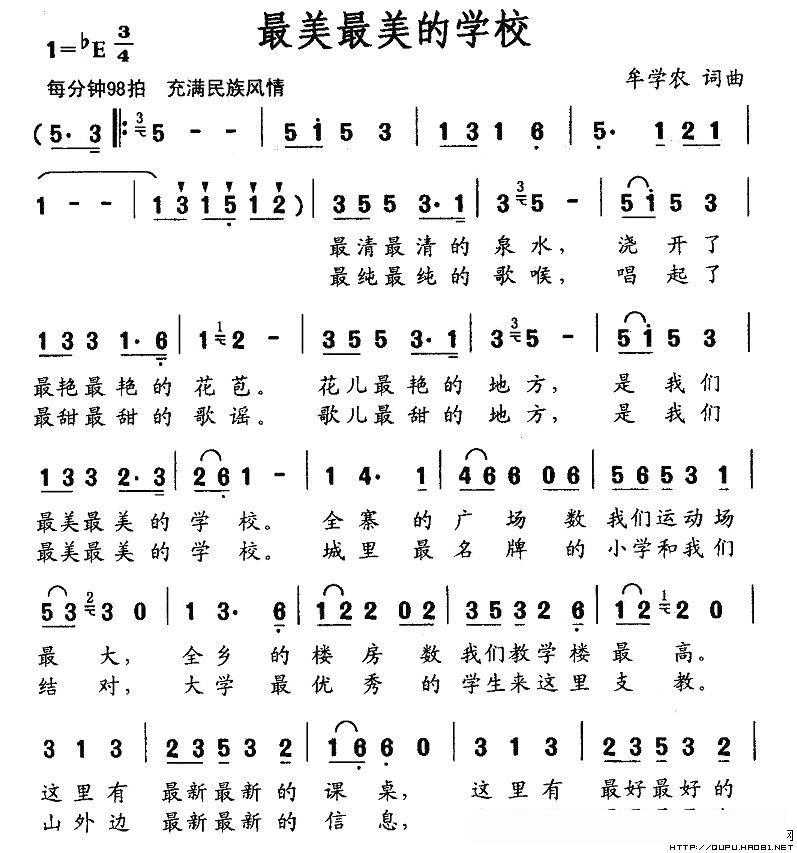 最美最美的学校
1=♭E 3/4
每分钟98拍 充满民族风情
牟学农 词曲
( 5· 3 ‖: 3 5 - - | 5 i 5 3 | 1 3 1 6 | 5· 1 2 1 |
1 - - | 1 3 1 5 1 2 ) | 3 5 5 3· 1 | 3 3 5 - | 5 i 5 3
最清最清的泉水, 浇开了
最纯最纯的歌喉, 唱起了
1 3 3 1· 6 | 1 1 2 - | 3 5 5 3· 1 | 3 3 5 - | 5 i 5 3
最艳最艳的花苞。 花儿最艳的地方, 是我们
最甜最甜的歌谣。 歌儿最甜的地方, 是我们
1 3 3 2· 3 | 2 6 1 - | 1 4· 1 | 4 6 6 0 6 | 5 6 5 3 1
最美最美的学校。 全寨的广场数我们运动场
最美最美的学校。 城里最名牌的小学和我们
5 3 2 3 0 | 1 3· 6 | 1 2 2 0 2 | 3 5 3 2 6 | 1 2 1 2 0
最大, 全乡的楼房数我们教学楼最高。
结对, 大学最优秀的学生来这里支教。
3 1 3 | 2 3 5 3 2 | 1 6 6 0 | 3 1 3 | 2 3 5 3 2
这里有最新最新的课桌, 这里有最好最好的
山外边最新最新的信息,
网
HTTP://QUPU.HAO81.NET